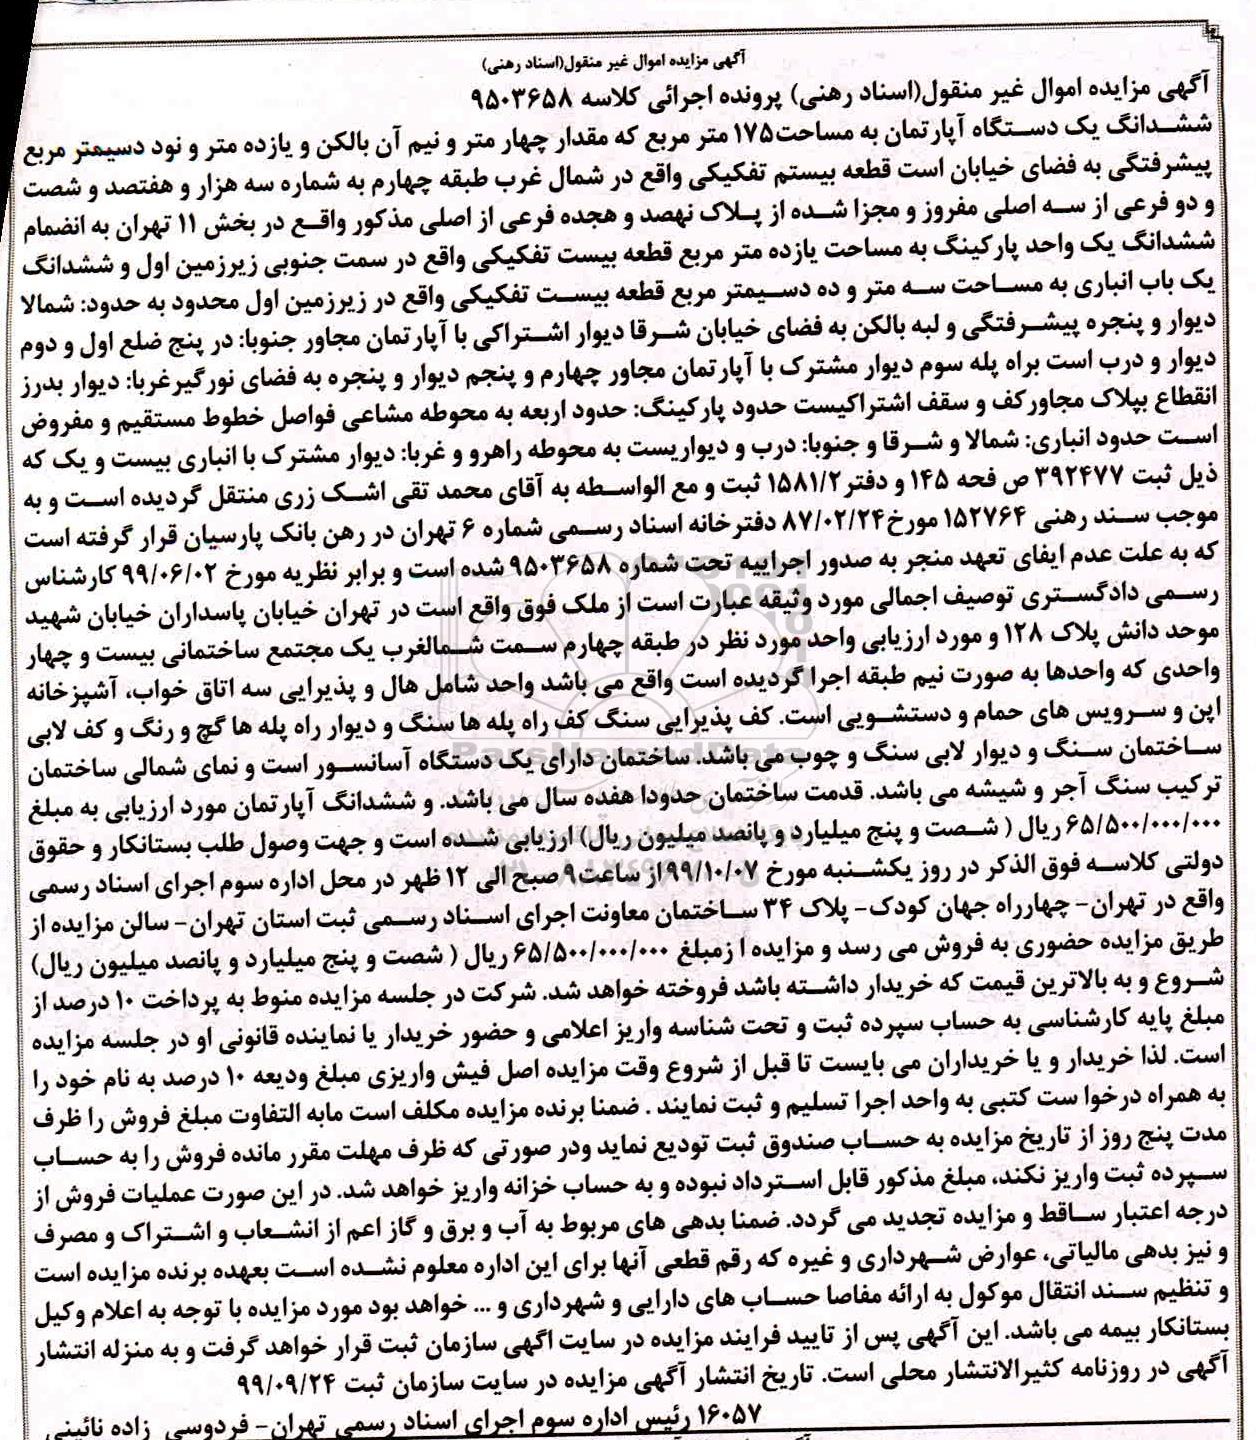 آگهی مزایده اموال غیر منقول(اسناد رهنی)
آگهی مزایده اموال غیر منقول(اسناد رهنی) پرونده اجرائی کلاسه ۹۵۰۳۶۵۸
ششدانگ یک دستگاه آپارتمان به مساحت۱۷۵ متر مربع که مقدار چهار متر و نیم آن بالکن و یازده متر و نود دسیمتر مربع
پیشرفتگی به فضای خیابان است قطعه بیستم تفکیکی واقع در شمال غرب طبقه چهارم به شماره سه هزار و هفتصد و شصت
و دو فرعی از سه اصلی مفروز و مجزا شده از پلاک نهصد و هجده فرعی از اصلی مذکور واقع در بخش ۱۱ تهران به انضمام
ششدانگ یک واحد پارکینگ به مساحت یازده متر مربع قطعه بیست تفکیکی واقع در سمت جنوبی زیرزمین اول و ششدانگ
یک باب انباری به مساحت سه متر و ده دسیمتر مربع قطعه بیست تفکیکی واقع در زیرزمین اول محدود به حدود: شمالا
دیوار و پنجره پیشرفتگی و لبه بالکن به فضای خیابان شرقا دیوار اشتراکی با آپارتمان مجاور جنوبا: در پنج ضلع اول و دوم
دیوار و درب است براه پله سوم دیوار مشترک با آپارتمان مجاور چهارم و پنجم دیوار و پنجره به فضای نورگیرغربا: دیوار بدرز
انقطاع بپلاک مجاورکف و سقف اشتراکیست حدود پارکینگ: حدود اربعه به محوطه مشاعی فواصل خطوط مستقیم و مفروض
است حدود انباری: شمالا و شرقا و جنوبا: درب و دیواریست به محوطه راهرو و غربا: دیوار مشترک با انباری بیست و یک که
ذیل ثبت ۳۹۲۴۷۷ ص فحه ۱۴۵ و دفتر ۱۵۸۱/۲ ثبت و مع الواسطه به آقای محمد تقی اشک زری منتقل گردیده است و به
موجب سند رهنی ۱۵۲۷۶۴ مورخ۸۷/۰۲/۲۴ دفترخانه اسناد رسمی شماره ۶ تهران در رهن بانک پارسیان قرار گرفته است
که به علت عدم ایفای تعهد منجر به صدور اجراییه تحت شماره ۹۵۰۳۶۵۸ شده است و برابر نظریه مورخ ۹۹/۰۶/۰۲ کارشناس
رسمی دادگستری توصیف اجمالی مورد وثیقه عبارت است از ملک فوق واقع است در تهران خیابان پاسداران خیابان شهید
موحد دانش پلاک ۱۲۸ و مورد ارزیابی واحد مورد نظر در طبقه چهارم سمت شمالغرب یک مجتمع ساختمانی بیست و چهار
واحدی که واحدها به صورت نیم طبقه اجرا گردیده است واقع می باشد واحد شامل هال و پذیرایی سه اتاق خواب، آشپزخانه
اپن و سرویس های حمام و دستشویی است. کف پذیرایی سنگ کف راه پله ها سنگ و دیوار راه پله ها گچ و رنگ و کف لابی
ساختمان سنگ و دیوار لابی سنگ و چوب می باشد. ساختمان دارای یک دستگاه آسانسور است و نمای شمالی ساختمان
ترکیب سنگ آجر و شیشه می باشد. قدمت ساختمان حدودا هفده سال می باشد. و ششدانگ آپارتمان مورد ارزیابی به مبلغ
۶۵/۵۰۰/۰۰۰/۰۰۰ ریال ( شصت و پنج میلیارد و پانصد میلیون ریال) ارزیابی شده است و جهت وصول طلب بستانکار و حقوق
دولتی کلاسه فوق الذکر در روز یکشنبه مورخ ۹۹/۱۰/۰۷ از ساعت ۹ صبح الی ۱۲ ظهر در محل اداره سوم اجرای اسناد رسمی
واقع در تهران- چهارراه جهان کودک- پلاک ۳۴ ساختمان معاونت اجرای اسناد رسمی ثبت استان تهران- سالن مزایده از
طریق مزایده حضوری به فروش می رسد و مزایده ا زمبلغ ۶۵/۵۰۰/۰۰۰/۰۰۰ ریال ( شصت و پنج میلیارد و پانصد میلیون ریال)
شروع و به بالاترین قیمت که خریدار داشته باشد فروخته خواهد شد. شرکت در جلسه مزایده منوط به پرداخت ۱۰ درصد از
مبلغ پایه کارشناسی به حساب سپرده ثبت و تحت شناسه واریز اعلامی و حضور خریدار یا نماینده قانونی او در جلسه مزایده
است. لذا خریدار و یا خریداران می بایست تا قبل از شروع وقت مزایده اصل فیش واریزی مبلغ ودیعه ۱۰ درصد به نام خود را
به همراه درخوا ست کتبی به واحد اجرا تسلیم و ثبت نمایند . ضمنا برنده مزایده مکلف است مابه التفاوت مبلغ فروش را ظرف
مدت پنج روز از تاریخ مزایده به حساب صندوق ثبت تودیع نماید ودر صورتی که ظرف مهلت مقرر مانده فروش را به حساب
سپرده ثبت واریز نکند، مبلغ مذکور قابل استرداد نبوده و به حساب خزانه واریز خواهد شد. در این صورت عملیات فروش از
درجه اعتبار ساقط و مزایده تجدید می گردد. ضمنا بدهی های مربوط به آب و برق و گاز اعم از انشعاب و اشتراک و مصرف
و نیز بدهی مالیاتی، عوارض شهرداری و غیره که رقم قطعی آنها برای این اداره معلوم نشده است بعهده برنده مزایده است
و تنظیم سند انتقال موکول به ارائه مفاصا حساب های دارایی و شهرداری و ... خواهد بود مورد مزایده با توجه به اعلام وکیل
بستانکار بیمه می باشد. این آگهی پس از تایید فرایند مزایده در سایت اگهی سازمان ثبت قرار خواهد گرفت و به منزله انتشار
آگهی در روزنامه کثیرالانتشار محلی است. تاریخ انتشار آگهی مزایده در سایت سازمان ثبت ۹۹/۰۹/۲۴
۱۶۰۵۷ رئیس اداره سوم اجرای اسناد رسمی تهران- فردوسی زاده نائینی
ParsNamadData